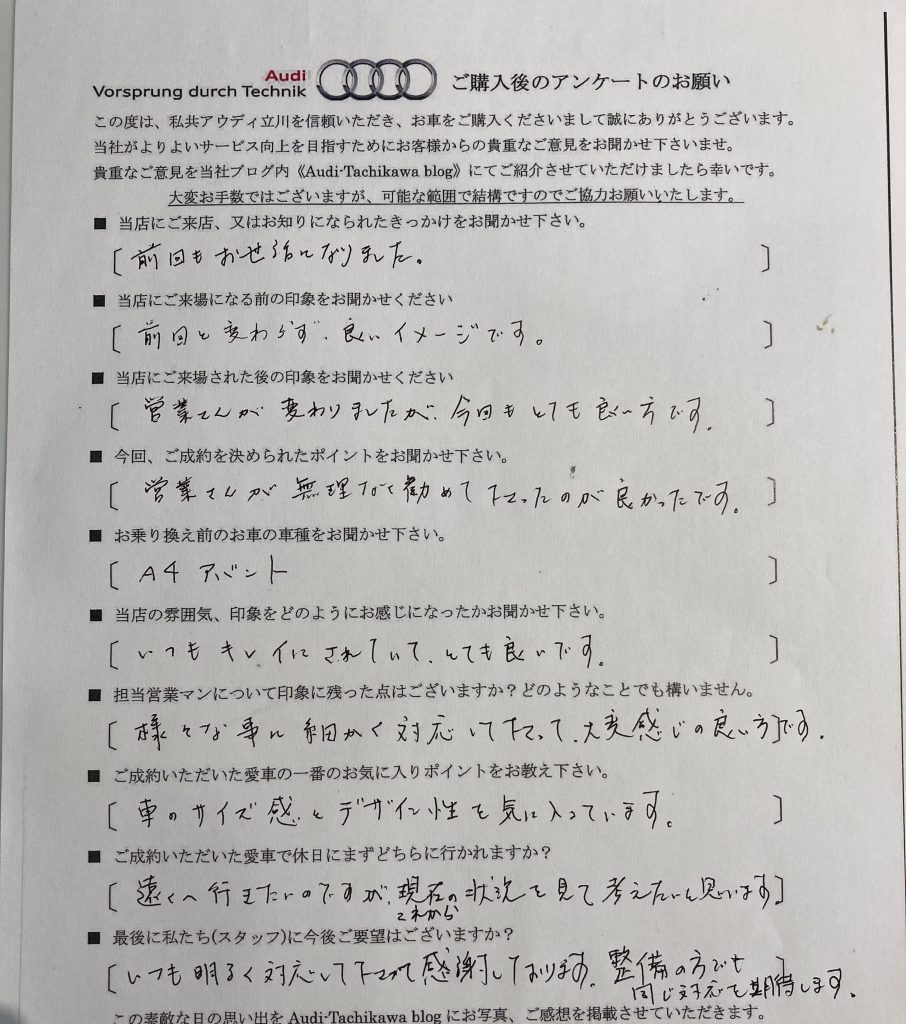 Audi
Vorsprung durch Technik
ご購入後のアンケートのお願い
この度は、私共アウディ立川を信頼いただき、お車をご購入くださいまして誠にありがとうございます。
当社がよりよいサービス向上を目指すためにお客様からの貴重なご意見をお聞かせ下さいませ。
貴重なご意見を当社ブログ内《Audi-Tachikawa blog》にてご紹介させていただけましたら幸いです。
大変お手数ではございますが、可能な範囲で結構ですのでご協力お願いいたします。
■ 当店にご来店、又はお知りになられたきっかけをお聞かせ下さい。
[前回もお世話になりました。]
■ 当店にご来場になる前の印象をお聞かせください
[前回と変わらず、良いイメージです。]
■ 当店にご来場された後の印象をお聞かせください
[営業さんが変わりましたが、今回もとても良い方です。]
■ 今回、ご成約を決められたポイントをお聞かせ下さい。
[営業さんが無理なく勧めて下さったのが良かったです。]
■ お乗り換え前のお車の車種をお聞かせ下さい。
[A4 アバント]
■ 当店の雰囲気、印象をどのようにお感じになったかお聞かせ下さい。
[いつもキレイにされていて、とても良いです。]
■ 担当営業マンについて印象に残った点はございますか？どのようなことでも構いません。
[様々な事に細かく対応して下さって、大変感じの良い方です。]
■ ご成約いただいた愛車の一番のお気に入りポイントをお教え下さい。
[車のサイズ感とデザイン性を気に入っています。]
■ ご成約いただいた愛車で休日にまずどちらに行かれますか？
[遠くへ行きたいのですが、現在の状況を見て考えたいと思います。]
これから
■ 最後に私たち(スタッフ)に今後ご要望はございますか？
[いつも明るく対応して下さって感謝しております。整備の方でも
同じ対応を期待します。]
この素敵な日の思い出を Audi-Tachikawa blog にお写真、ご感想を掲載させていただきます。